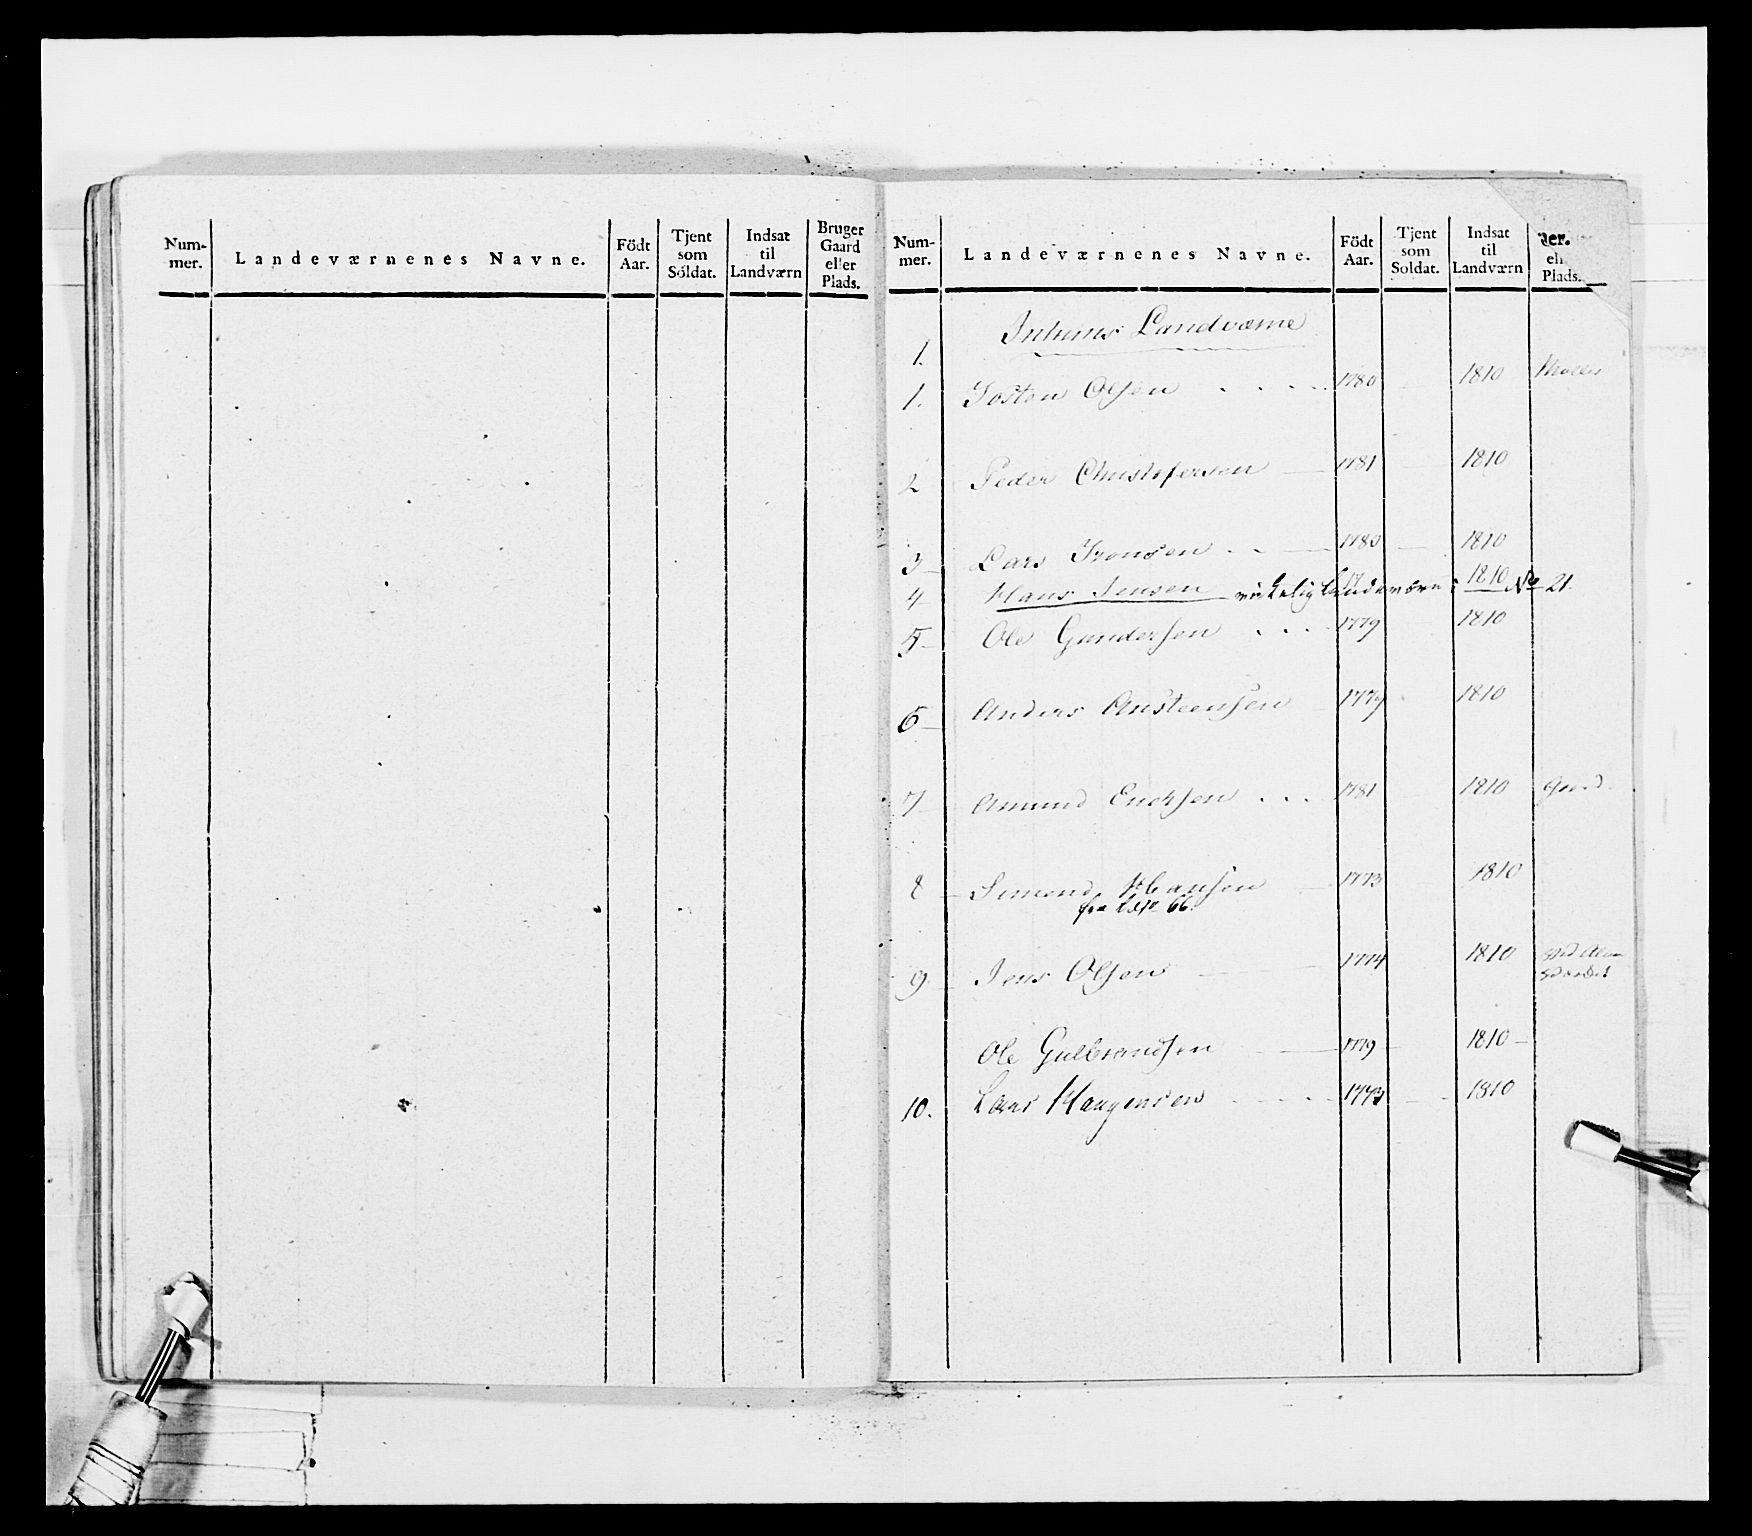 Num-
mer.
Landeværnenes Navne.
Födt
Aar.
Tjent
som
Soldat.
Indsat
til
Landværn
Bruger
Gaard
eller
Plads.
Num-
mer.
Landeværnenes Navne.
Födt
Aar.
Tjent
som
Soldat.
Indsat
til
Landværn
der.
ell
Plads.
Landværne
1.
1. Josten Olsen 1780 1810
2 Peder Christopersen 1781 1810
3 Lars 1780 1810
4 Hans Jensen virkelig Landeværn i 1810 No 21.
5 Ole Gundersen 1779 1810
6 Anders Ansteensen 1779 1810
7 Amund Erichsen 1781 1810 Gaard
8 Simend Hansen 1773 1810
fra 66.
9. Jens Olsen 1774 1810
Ole Gulbrandsen 1779 1810
10. Lars Haagensen 1773 1810